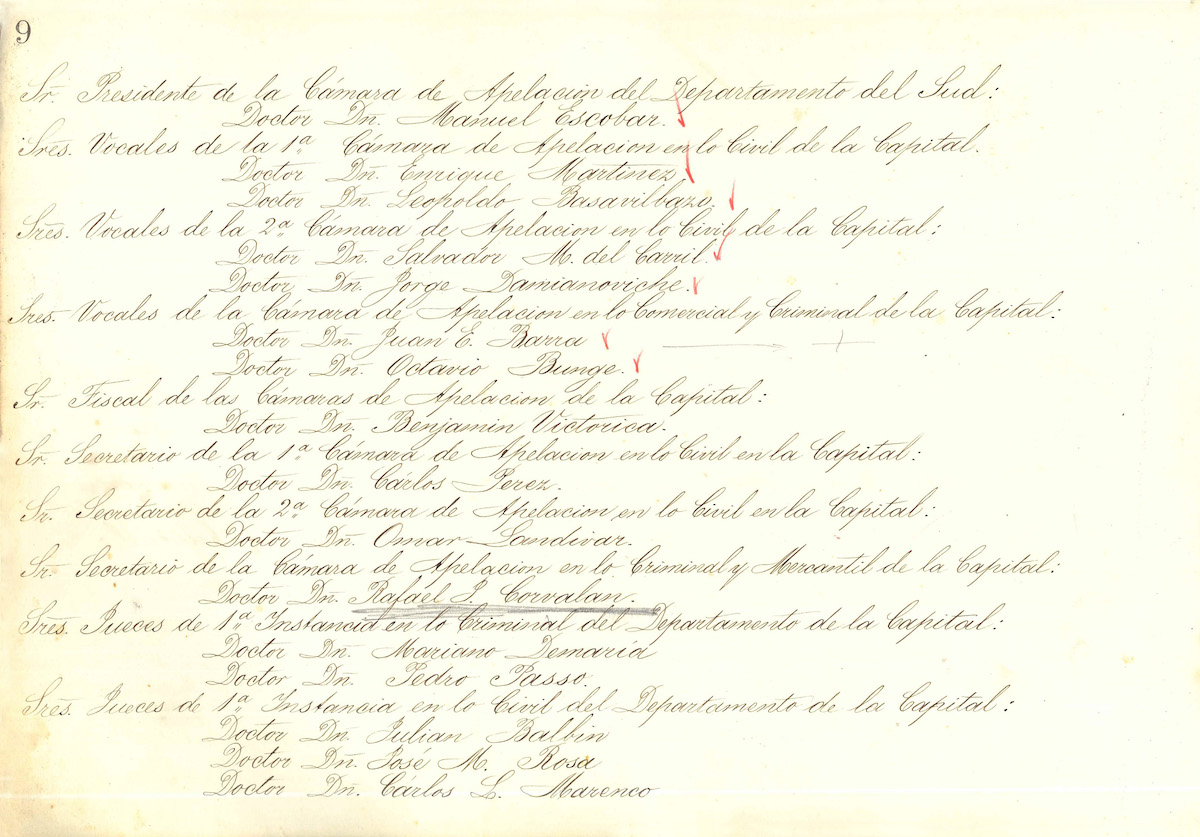 9
Sr. Presidente de la Cámara de Apelacion del Departamento del Sud:
Doctor Dn. Manuel Escobar.
Sres. Vocales de la 1ª Cámara de Apelacion en lo Civil de la Capital.
Doctor Dn. Enrique Martinez
Doctor Dn. Leopoldo Basavilbazo.
Sres. Vocales de la 2ª Cámara de Apelacion en lo Civil de la Capital:
Doctor Dn. Salvador M. del Carril.
Doctor Dn. Jorge Damianoviche.
Sres. Vocales de la Cámara de Apelacion en lo Comercial y Criminal de la Capital:
Doctor Dn. Juan E. Barra
Doctor Dn. Octavio Bunge.
Sr. Fiscal de las Cámaras de Apelacion de la Capital:
Doctor Dn. Benjamin Victorica.
Sr. Secretario de la 1ª Cámara de Apelacion en lo Civil en la Capital:
Doctor Dn. Cárlos Perez.
Sr. Secretario de la 2ª Cámara de Apelacion en lo Civil en la Capital:
Doctor Dn. Omar Landivar.
Sr. Secretario de la Cámara de Apelacion en lo Criminal y Mercantil de la Capital:
Doctor Dn. Rafael J. Corvalan.
Sres. Jueces de 1ª Instancia en lo Criminal del Departamento de la Capital:
Doctor Dn. Mariano Demaría
Doctor Dn. Pedro Passo.
Sres. Jueces de 1ª Instancia en lo Civil del Departamento de la Capital:
Doctor Dn. Julian Balbin
Doctor Dn. José M. Rosa
Doctor Dn. Cárlos L. Marenco